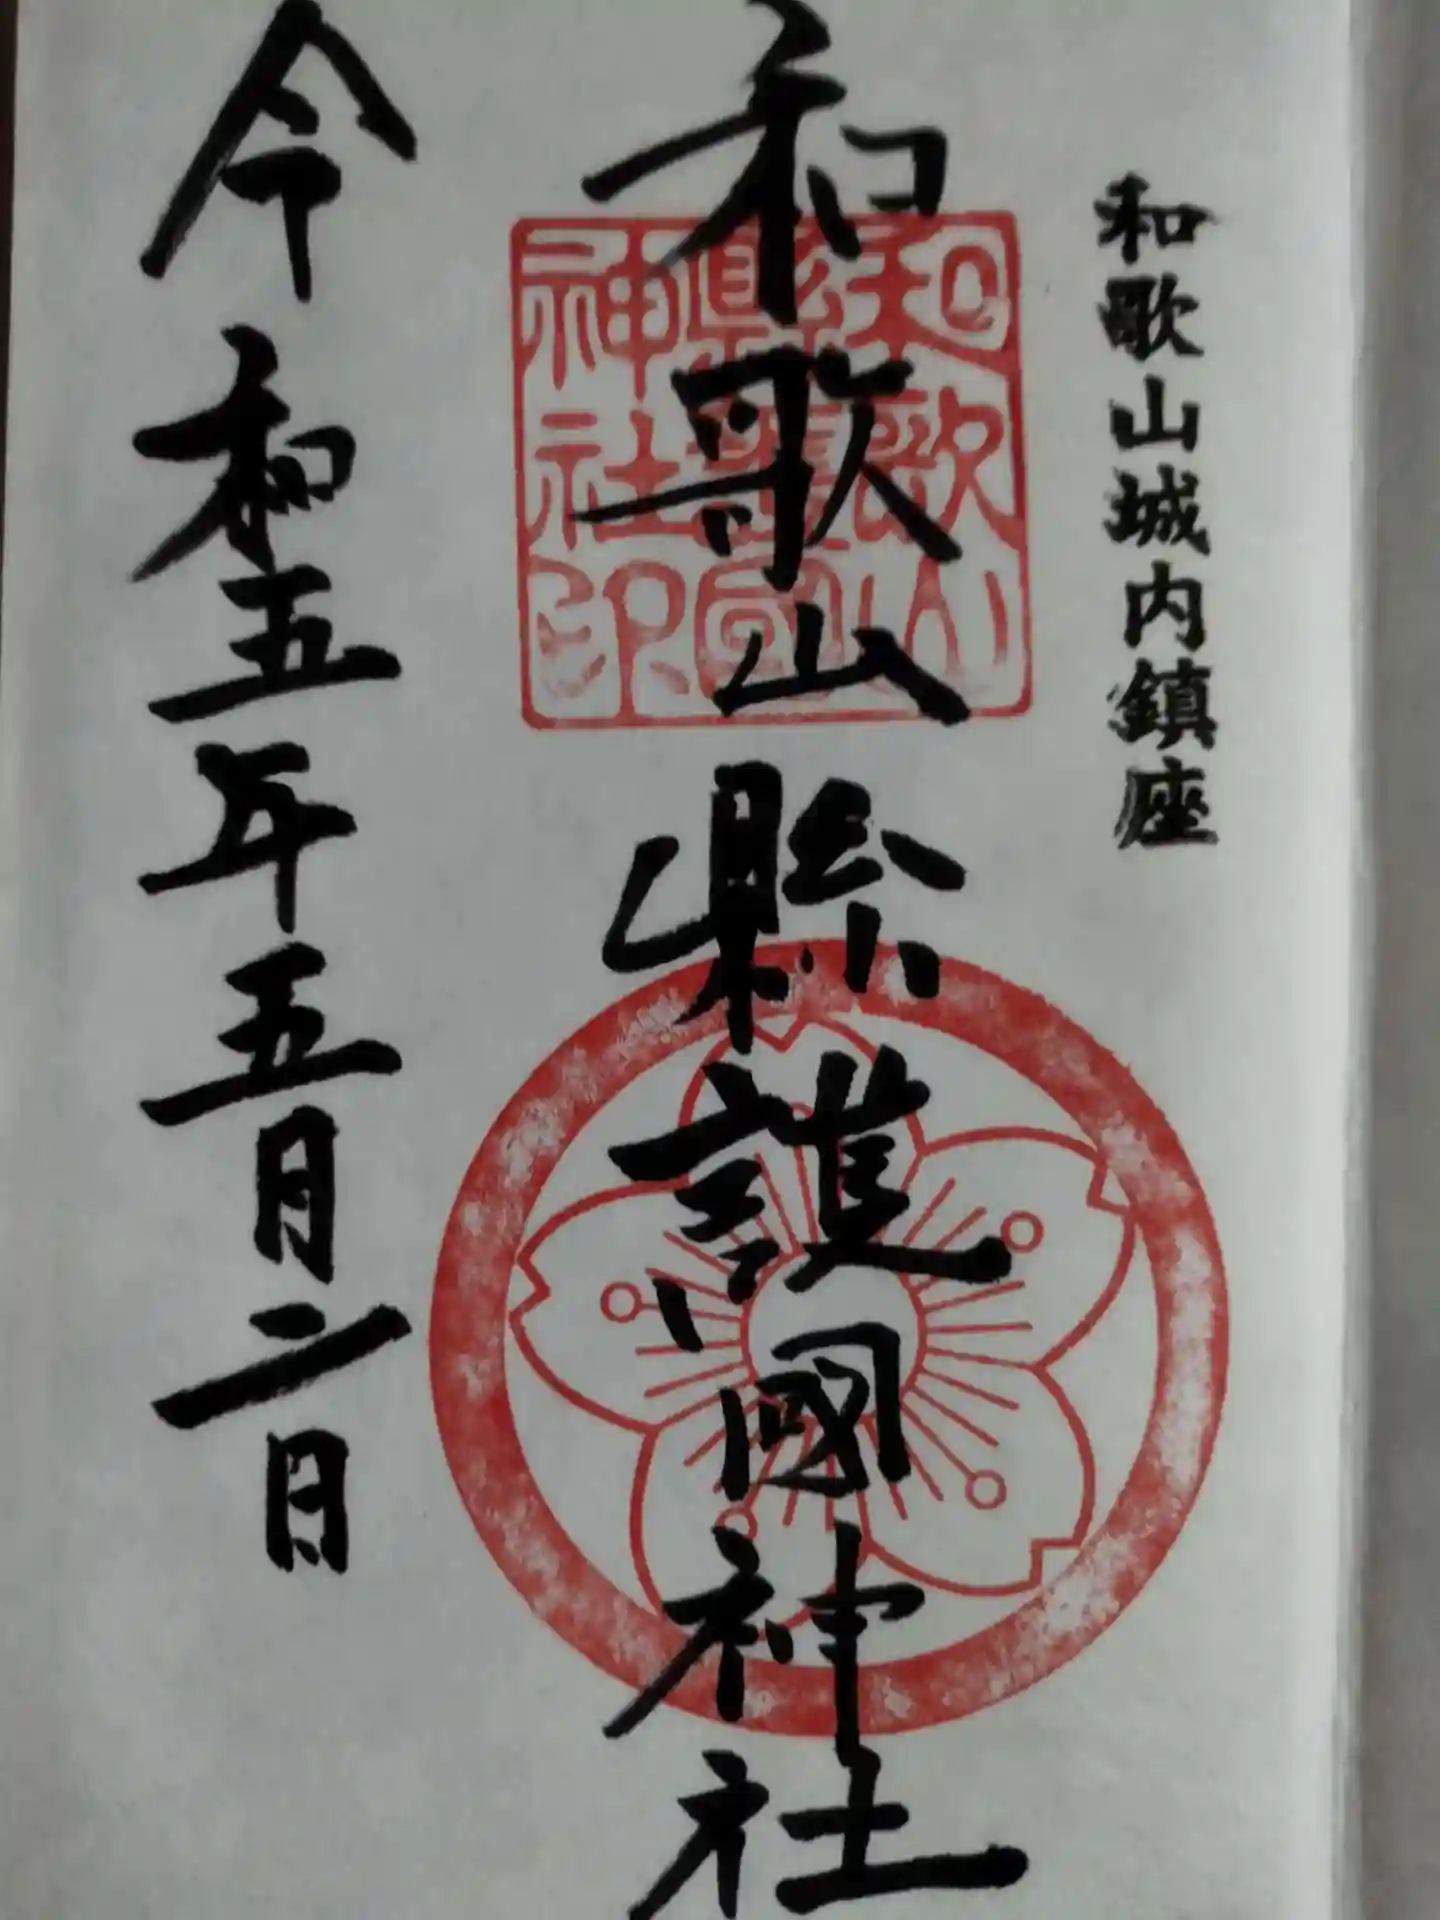 和歌山城内鎮座
和歌山縣護國神社
和歌山
縣護國
神社印
令和五年五月二日